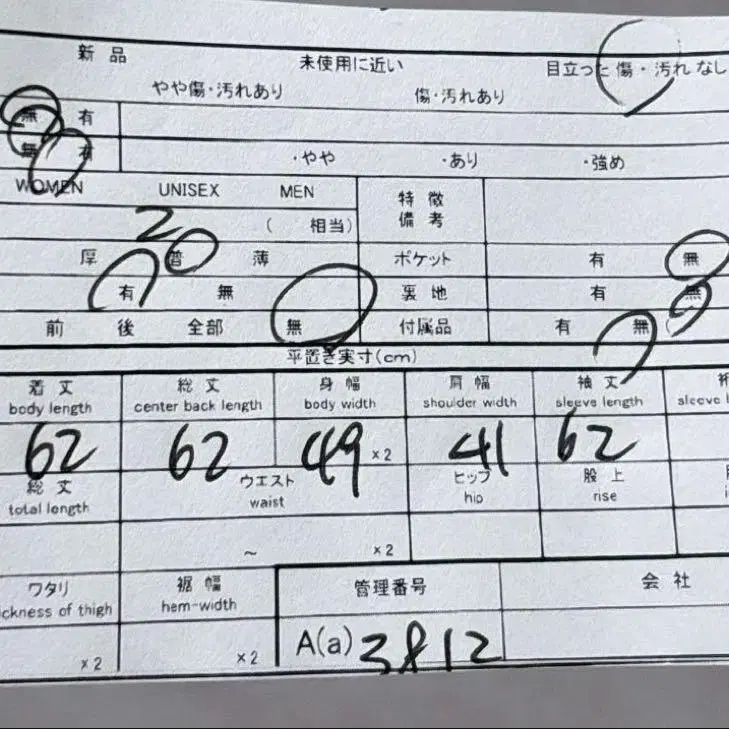 新品 未使用に近い 目立った傷・汚れなし
やや傷・汚れあり 傷・汚れあり
無 有
無 有 ・やや ・あり ・強め
WOMEN UNISEX MEN 特徴
備考
20 ( 相当)
厚 普 薄 ポケット 有 無
有 無 裏地 有 無
前 後 全部 無 付属品 有 無 (
平置き実寸(cm)
着丈 総丈 身幅 肩幅 袖丈 裄
body length center back length body width shoulder width sleeve length sleeve
62 62 49 ×2 41 62
総丈 ウエスト ヒップ 股上
total length waist hip rise
~ ×2
ワタリ 裾幅 管理番号 会社
ickness of thigh hem-width
×2 ×2 A(a) 3812